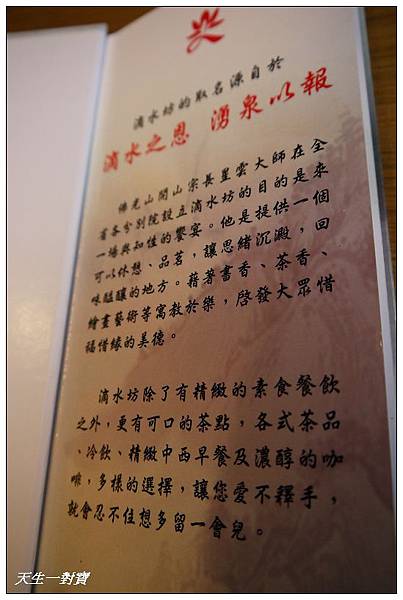 滴水坊的取名源自於
滴水之恩 湧泉以報
佛光山開山宗長星雲大師在全
省各分別院設立滴水坊的目的是來
一場與知性的饗宴。他是提供一個
可以休憩、品茗,讓思緒沉澱,回
味醞釀的地方。藉著書香、茶香、
繪畫藝術等寓教於樂,啓發大眾惜
福惜緣的美德。
滴水坊除了有精緻的素食餐飲
之外,更有可口的茶點,各式茶品
、冷飲、精緻中西早餐及濃醇的咖
啡,多樣的選擇,讓您愛不釋手,
就會忍不住想多留一會兒。
天生一對寶